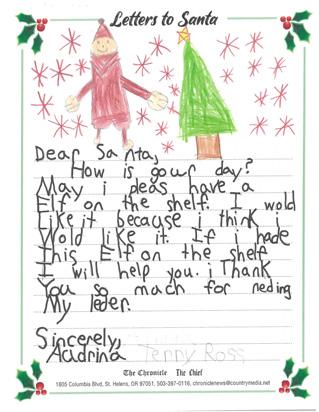 Letters to Santa
Dear Santa,
How is your day?
May i pleas have a
Elf on the shelf. I wold
Like it because i think i
Wold like it. If i hade
This Elf on the shelf
I will help you. i Thank
You so mach for reding
My leder.
Sincerely,
Acidrina Terry Ross
The Chronicle The Chief
1805 Columbia Blvd, St. Helens, OR 97051, 503-397-0116, chroniclenews@countrymedia.net